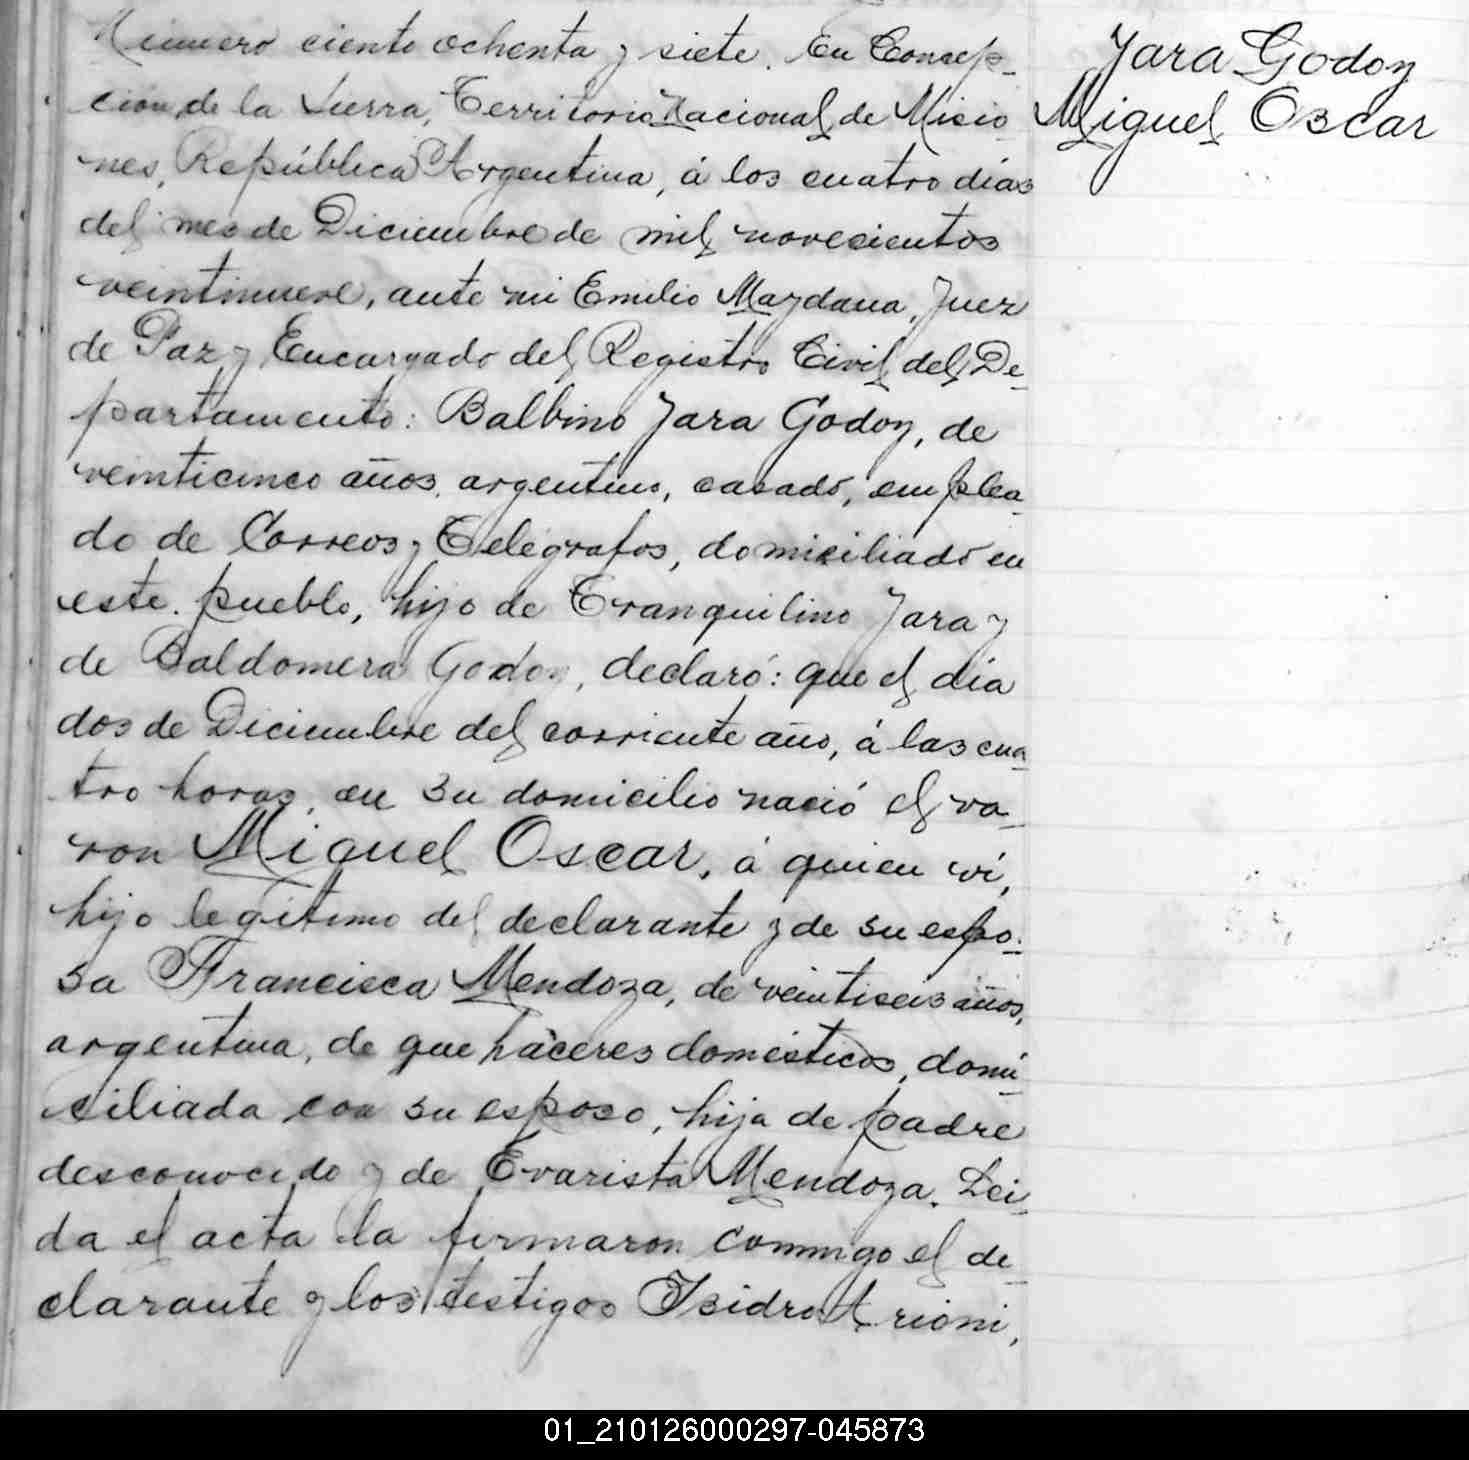 Número ciento ochenta y siete. En Concep-
ción de la Sierra, Territorio Nacional de Misio-
nes, República Argentina, á los cuatro días
del mes de Diciembre de mil novecientos
veintinueve, ante mi Emilio Maydana, Juez
de Paz y Encargado del Registro Civil del De-
partamento: Balbino Jara Godoy, de
veinticinco años, argentino, casado, emplea-
do de Correos y Telégrafos, domiciliado en
este pueblo, hijo de Tranquilino Jara y
de Baldomera Godoy, declaró: que el día
dos de Diciembre del corriente año, á las cua-
tro horas, en su domicilio nació el va-
ron Miguel Oscar, á quien ví,
hijo legítimo del declarante y de su espo-
sa Francisca Mendoza, de veintiseis años,
argentina, de que háceres domésticos, domi-
ciliada con su esposo, hija de padre
desconocido y de Evarista Mendoza. Lei-
da el acta la firmaron conmigo el de-
clarante y los testigos Isidro Arioni,
Jara Godoy
Miguel Oscar
01_210126000297-045873